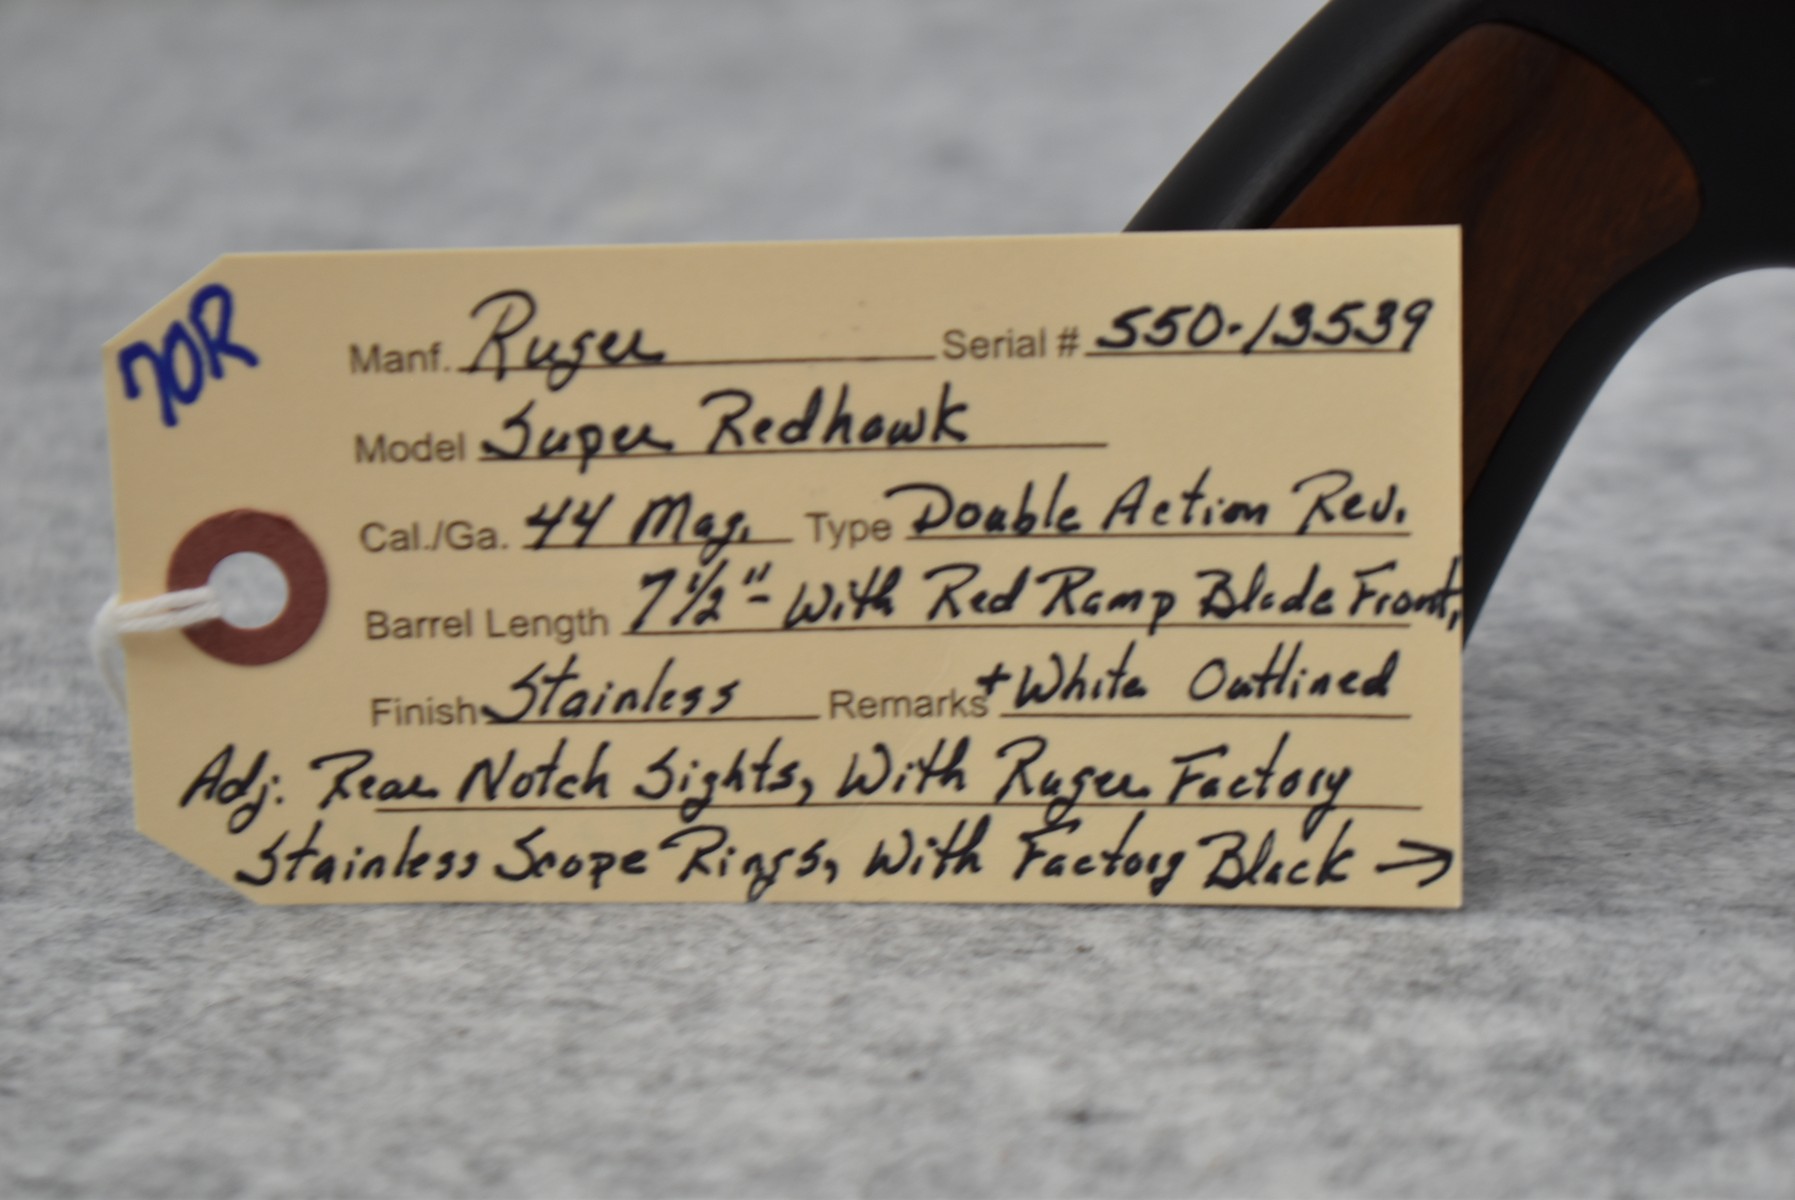 70R
Manf. Ruger Serial # 550-13539
Model Super Redhawk
Cal./Ga. 44 Mag. Type Double Action Rev.
Barrel Length 7 1/2" - With Red Ramp Blade Front,
Finish Stainless Remarks + White Outlined
Adj. Rear Notch Sights, With Ruger Factory
Stainless Scope Rings, With Factory Black →